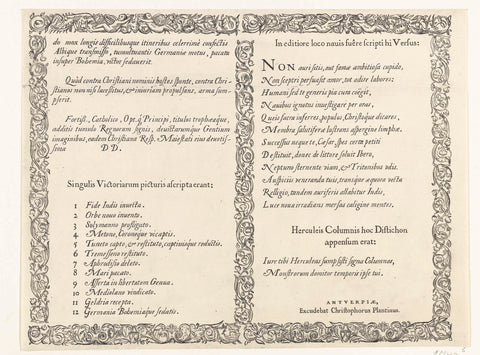 do mox longis difficilibusque itineribus celerrimè confectis
Albique transmisso, tumultuantis Germaniæ motus, pacata
insuper Bohemia, victor sedauerit.
Quòd contra Christiani nominis hostes sponte, contra Chri-
stianos non nisi lacessitus, & iniuriam propulsans, arma sum-
pserit.
Fortiss. Catholico, Opt. q́; Principi, titulis trophæisque,
additis tumulo Regnorum signis, deuictarumque Gentium
imaginibus, eadem Christiana Resp. Maiestati eius deuotis-
sima D D.
Singulis Victoriarum picturis ascripta erant;
1 Fide Indis inuecta.
2 Orbe nouo inuento.
3 Solymanno profligato.
4 Metone, Coroneque vi captis.
5 Tuneto capto, & restituto, captiuisque reductis.
6 Tremessono restituto.
7 Aphrodisio deleto.
8 Mari pacato.
9 Asserta in libertatem Genua.
10 Mediolano vindicato.
11 Geldria recepta.
12 Germania Bohemiaque sedatis.
In editiore loco nauis fuêre scripti hi Versus:
NON auri sitis, aut famæ ambitiosa cupido,
Non sceptri persuasit amor, tot adire labores:
Humani sed te generis pia cura coëgit,
Nauibus ignotus inuestigare per oras,
Queis sacra inferres populis, Christóque dicares,
Membra salutiferæ lustrans aspergine limphæ.
Successus neque te, Cæsar, spes certa petiti
Destituit, donec de littore soluit Ibero,
Neptuno sternente viam, & Tritonibus vdis.
Auspicijs veneranda tuis, transque æquora vecta
Relligio, tandem auriferis allabitur Indis,
Luce noua irradians mersas caligine mentes.
Herculeis Columnis hoc Distichon
appensum erat:
Iure tibi Herculeas sumpsisti signa Columnas,
Monstrorum domitor temporis ipse tui.
ANTVERPIÆ,
Excudebat Christophorus Plantinus.